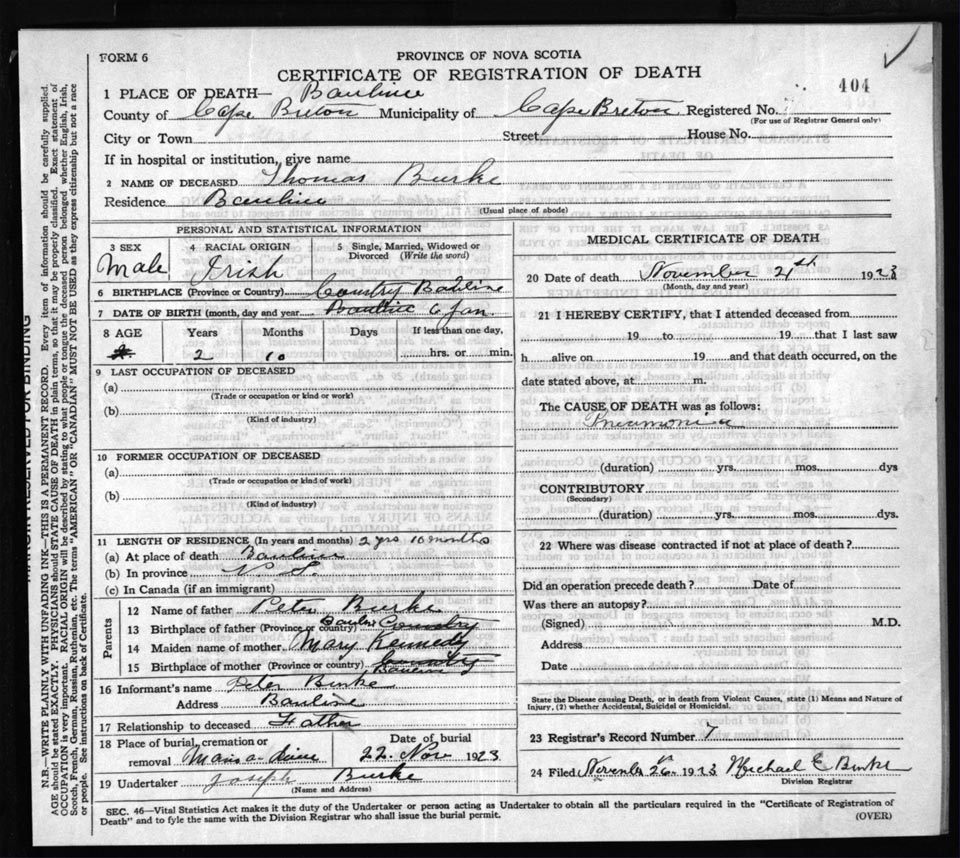 FORM 6
PROVINCE OF NOVA SCOTIA
CERTIFICATE OF REGISTRATION OF DEATH
404
1 PLACE OF DEATH— Bauline
County of Cape Breton Municipality of Cape Breton Registered No.
(For use of Registrar General only)
City or Town Street House No.
If in hospital or institution, give name
2 NAME OF DECEASED Thomas Burke
Residence Bauline
(Usual place of abode)
PERSONAL AND STATISTICAL INFORMATION
3 SEX 4 RACIAL ORIGIN 5 Single, Married, Widowed or Divorced (Write the word)
Male Irish
6 BIRTHPLACE (Province or Country) Country Bauline
7 DATE OF BIRTH (month, day and year Bauline 6 Jan.
8 AGE Years Months Days If less than one day,
2 10 hrs. or min.
9 LAST OCCUPATION OF DECEASED
(a)
(Trade or occupation or kind or work)
(b)
(Kind of industry)
10 FORMER OCCUPATION OF DECEASED
(a)
(Trade or occupation or kind of work)
(b)
(Kind of industry)
11 LENGTH OF RESIDENCE (In years and months) 2 yrs 10 months
(a) At place of death Bauline
(b) In province N. S.
(c) In Canada (if an immigrant)
Parents
12 Name of father Peter Burke
13 Birthplace of father (Province or country) Bauline Country
14 Maiden name of mother Mary Kennedy
15 Birthplace of mother (Province or country) Country
Bauline
16 Informant's name Peter Burke
Address Bauline
17 Relationship to deceased Father
18 Place of burial, cremation or removal Date of burial
Main a-dieu 22 Nov 1923
19 Undertaker Joseph Burke
(Name and Address)
MEDICAL CERTIFICATE OF DEATH
20 Date of death November 21st 1923
(Month, day and year)
21 I HEREBY CERTIFY, that I attended deceased from
19 to 19 that I last saw
h alive on 19 and that death occurred, on the
date stated above, at m.
The CAUSE OF DEATH was as follows:
Pneumonia
(duration) yrs. mos. dys
CONTRIBUTORY
(Secondary)
(duration) yrs. mos. dys.
22 Where was disease contracted if not at place of death?
Did an operation precede death? Date of
Was there an autopsy?
(Signed) M.D.
Address
Date
State the Disease causing Death, or in death from Violent Causes, state (1) Means and Nature of
Injury, (2) whether Accidental, Suicidal or Homicidal.
23 Registrar's Record Number 7
24 Filed November 26 1923 Michael E Burke
Division Registrar
SEC. 46—Vital Statistics Act makes it the duty of the Undertaker or person acting as Undertaker to obtain all the particulars required in the "Certificate of Registration of
Death" and to fyle the same with the Division Registrar who shall issue the burial permit.
(OVER)
MARGIN RESERVED FOR BINDING
N.B.—WRITE PLAINLY WITH UNFADING INK—THIS IS A PERMANENT RECORD. Every item of information should be carefully supplied.
AGE should be stated EXACTLY. PHYSICIANS should STATE CAUSE OF DEATH in plain terms, so that it may be properly classified. Exact statement of
OCCUPATION is very important. RACIAL ORIGIN will be described by stating to what people or tongue the deceased person belonged whether English, Irish,
Scotch, French, German, Russian, Ruthenian, etc. The terms "AMERICAN" OR "CANADIAN" MUST NOT BE USED as they express citizenship but not a race
or people. See instructions on back of Certificate.